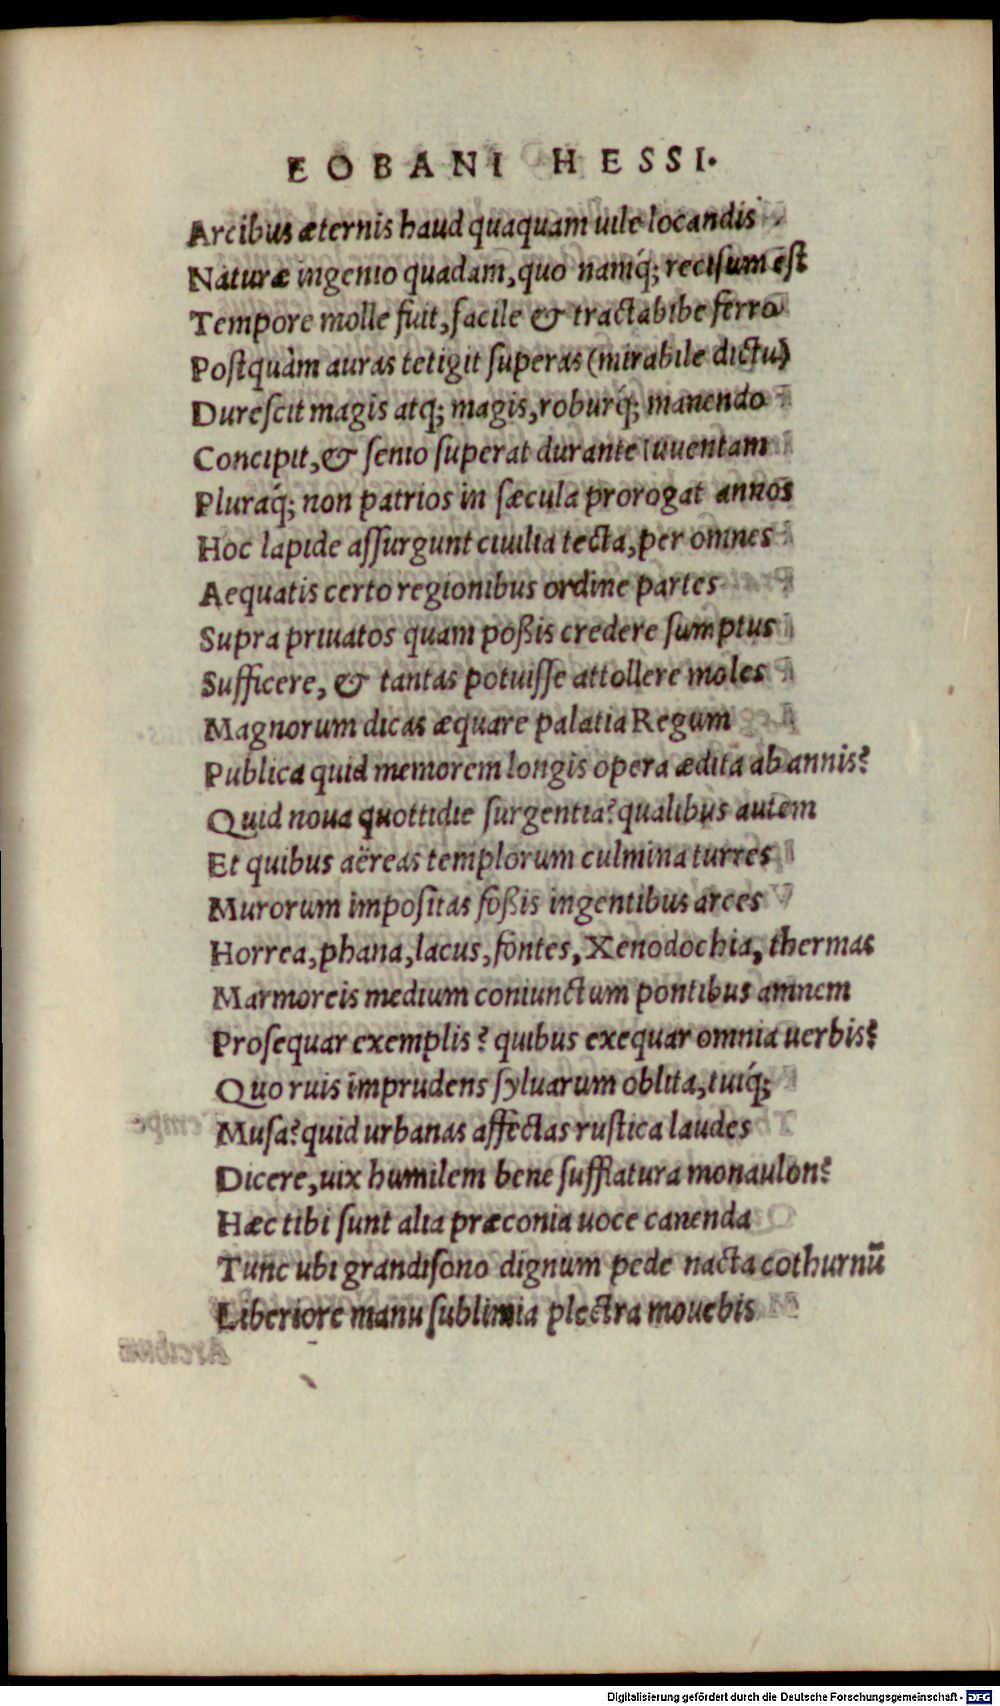 EOBANI HESSI.
Arcibus æternis haud quaquam uile locandis
Naturæ ingenio quadam, quo namq́; recisum est
Tempore molle fuit, facile & tractabibe ferro
Postquàm auras tetigit superas (mirabile dictu)
Durescit magis atq; magis, roburq́; manendo
Concipit, & senio superat durante iuuentam
Pluraq́; non patrios in sæcula prorogat annos
Hoc lapide assurgunt ciuilia tecta, per omnes
Aequatis certo regionibus ordine partes
Supra priuatos quam poßis credere sumptus
Sufficere, & tantas potuisse attollere moles
Magnorum dicas æquare palatia Regum
Publica quid memorem longis opera ædita ab annis?
Quid noua quottidie surgentia? qualibus autem
Et quibus aëreas templorum culmina turres
Murorum impositas foßis ingentibus arces
Horrea, phana, lacus, fontes, Xenodochia, thermas
Marmoreis medium coniunctum pontibus amnem
Prosequar exemplis? quibus exequar omnia uerbis?
Quo ruis imprudens syluarum oblita, tuiq́;
Musa? quid urbanas affectas rustica laudes
Dicere, uix humilem bene sufflatura monaulon?
Hæc tibi sunt alia præconia uoce canenda
Tunc ubi grandisono dignum pede nacta cothurnū
Liberiore manu sublimia plectra mouebis
Digitalisierung gefördert durch die Deutsche Forschungsgemeinschaft - DFG